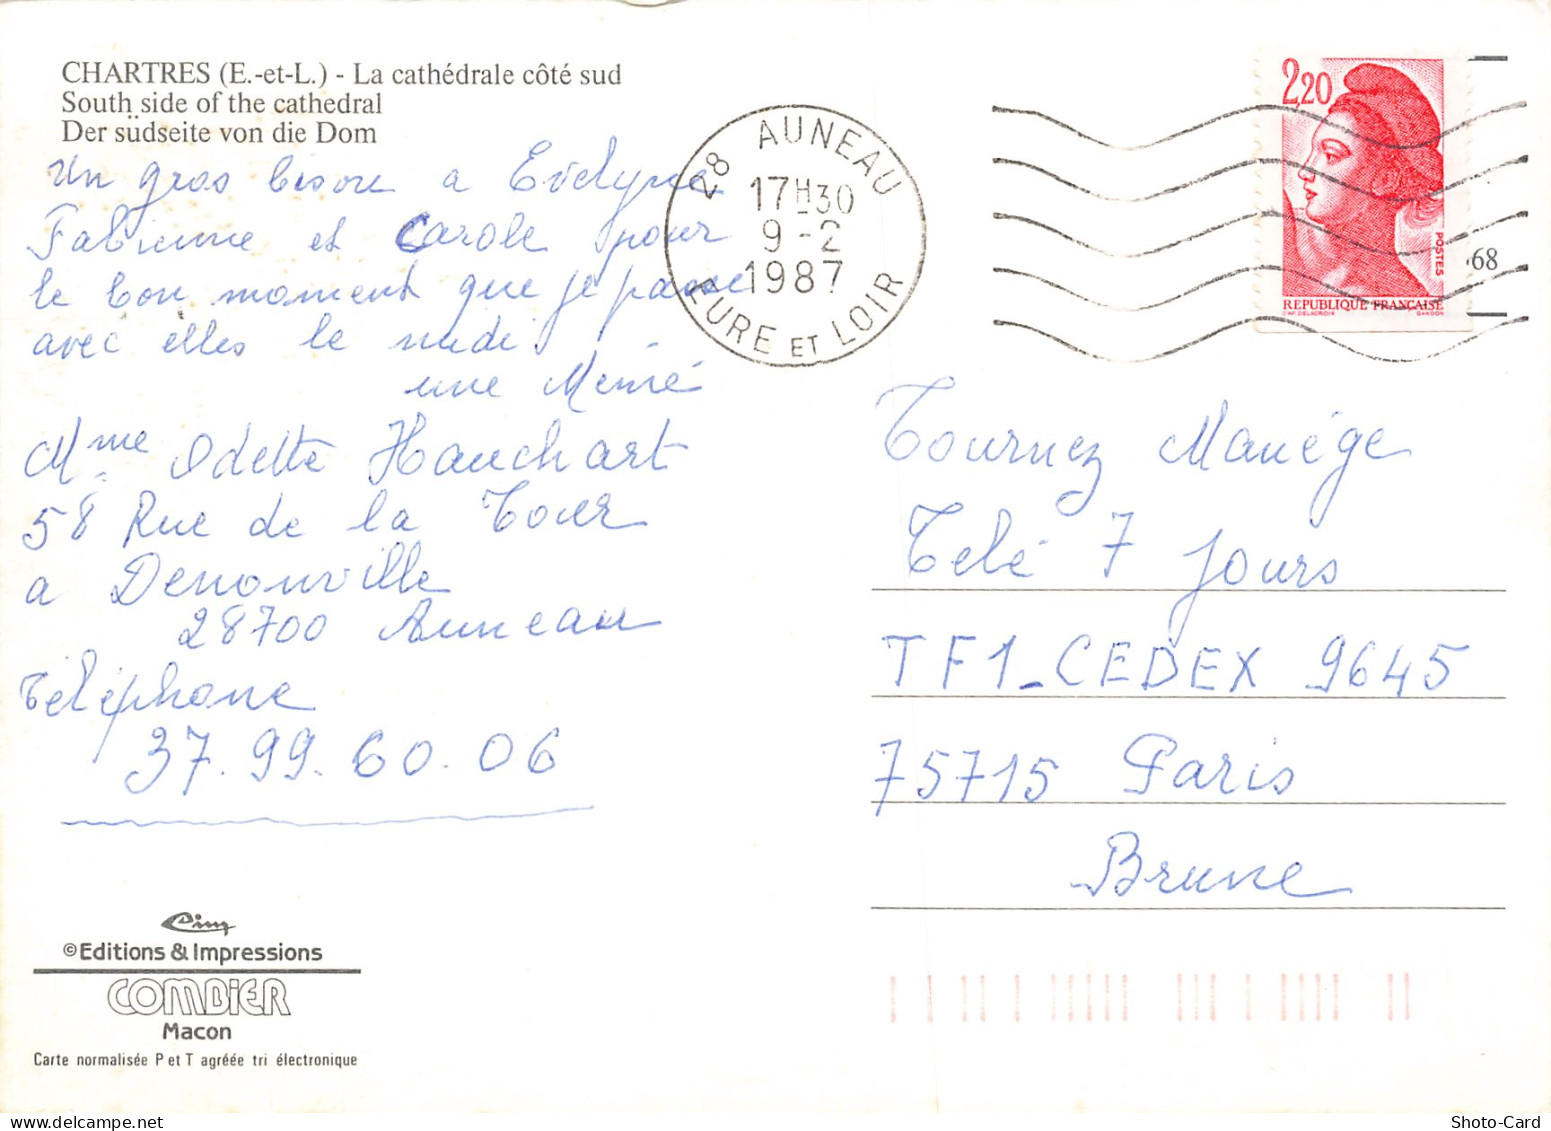 CHARTRES (E.-et-L.) - La cathédrale côté sud
South side of the cathedral
Der südseite von die Dom
Un gros bisou a Evelyne
Fabienne et Carole pour
le bon moment que je passe
avec elles le midi
une Mémé
Mme Odette Hauchart
58 Rue de la Tour
a Denonville
28700 Auneau
Téléphone
37.99.60.06
Cim
©Editions & Impressions
COMBIER
Macon
Carte normalisée P et T agréée tri électronique
28 AUNEAU
17H30
9-2
1987
EURE ET LOIR
2,20
POSTES
REPUBLIQUE FRANÇAISE
D'AP. DELACROIX GANDON
68
Tournez Manège
Télé 7 Jours
TF1_CEDEX 9645
75715 Paris
Brune
Shoto-Card